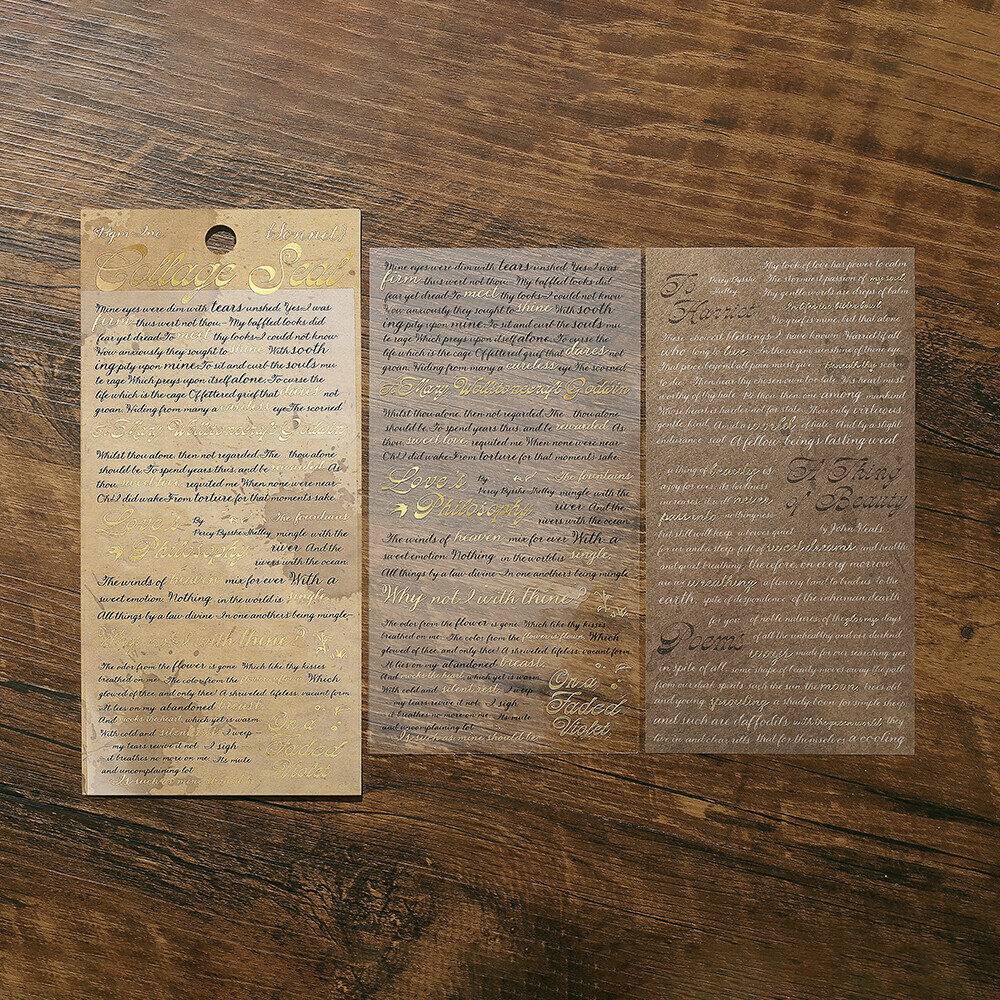 Bgm Inc. (Sonnet)
Collage Seal
Mine eyes were dim with tears unshed. Yes-I was
firm—thus wert not thou.—My baffled looks did
fear yet dread To meet thy looks-I could not know
How anxiously they sought to shine With sooth
ing pity upon mine.To sit and curb the souls mu
te rage Which preys upon itself alone. To curse the
life which is the cage Of fettered grief that dares not
groan. Hiding from many a careless eyeThe scorned
To Mary Wollstonecraft Godwin
Whilst thou alone, then not regarded. The thou alone
should be. To spend years thus, and be rewarded As
thou, sweet love, requited me When none were near
Oh!-I did wake-From torture for that moments sake.
Love's
Philosophy
By
Percy Bysshe Shelley
The fountains
mingle with the
river And the
rivers with the ocean.
The winds of heaven mix for ever With a
sweet emotion. Nothing in the world is single.
All things by a law divine In one anothers being mingle-
Why not I with thine?
The odor from the flower is gone Which like thy kisses
breathed on me. The color from the flower is flown Which
glowed of thee, and only thee! A shriveled, lifeless, vacant form
It lies on my abandoned breast.
And mocks the heart which yet is warm.
With cold and silent rest. I weep
my tears revive it not I sigh
it breathes no more on me. Its mute
and uncomplaining lot
Is such as mine should be
On a
Faded
Violet
Mine eyes were dim with tears unshed. Yes-I was
firm—thus wert not thou.—My baffled looks did
fear yet dread To meet thy looks-I could not know
How anxiously they sought to shine With sooth
ing pity upon mine.To sit and curb the souls mu
te rage Which preys upon itself alone. To curse the
life which is the cage Of fettered grief that dares not
groan. Hiding from many a careless eyeThe scorned
To Mary Wollstonecraft Godwin
Whilst thou alone, then not regarded. The thou alone
should be. To spend years thus, and be rewarded As
thou, sweet love, requited me When none were near
Oh!-I did wake-From torture for that moments sake.
Love's
Philosophy
By
Percy Bysshe Shelley
The fountains
mingle with the
river And the
rivers with the ocean
The winds of heaven mix for ever With a
sweet emotion. Nothing in the world is single.
All things by a law divine In one anothers being mingle
Why not I with thine?
The odor from the flower is gone Which like thy kisses
breathed on me. The color from the flower is flown Which
glowed of thee, and only thee! A shriveled, lifeless, vacant form
It lies on my abandoned breast.
And mocks the heart which yet is warm.
With cold and silent rest. I weep
my tears revive it not I sigh
it breathes no more on me. Its mute
and uncomplaining lot
Is such as mine should be
On a
Faded
Violet
To
Harriet
Percy Bysshe
Shelley
My look of love has power to calm
The stormiest passion of my soul
My gentle words are drops of balm
No grief is mine, but that alone
These choicest blessings I have known Harriet! if all
who long to live In the warm sunshine of thine eye
That price beyond all pain must give Beneath thy scorn
to die Then hear thy chosen own too late His heart most
worthy of thy hate. Be thou, then one among mankind
Whose heart is harder not for state. Thou only virtuous,
gentle, kind. Amid a world of hate. And by a slight
endurance seal A fellow-being's lasting weal
a thing of beauty is
a joy for ever. its loveliness
increases; it will never
pass into nothingness
but still will keep a bower quiet
A Thing
of Beauty
by John Keats
for us, and a sleep full of sweet dreams, and health
and quiet breathing, therefore, on every morrow,
are we wreathing a flowery band to bind us to the
earth. spite of despondence of the inhuman dearth
Poems
for you, of noble natures, of the gloomy day
of all the unhealthy and o'er darkend
ways made for our searching yes
in spite of all, some shape of beauty moves away the pall
from our dark spirits such the sun the moon trees old
and young sprouting a shady boon for simple sheep
and such are daffodils with the green world they
live in, and clear rills that for themselves a cooling